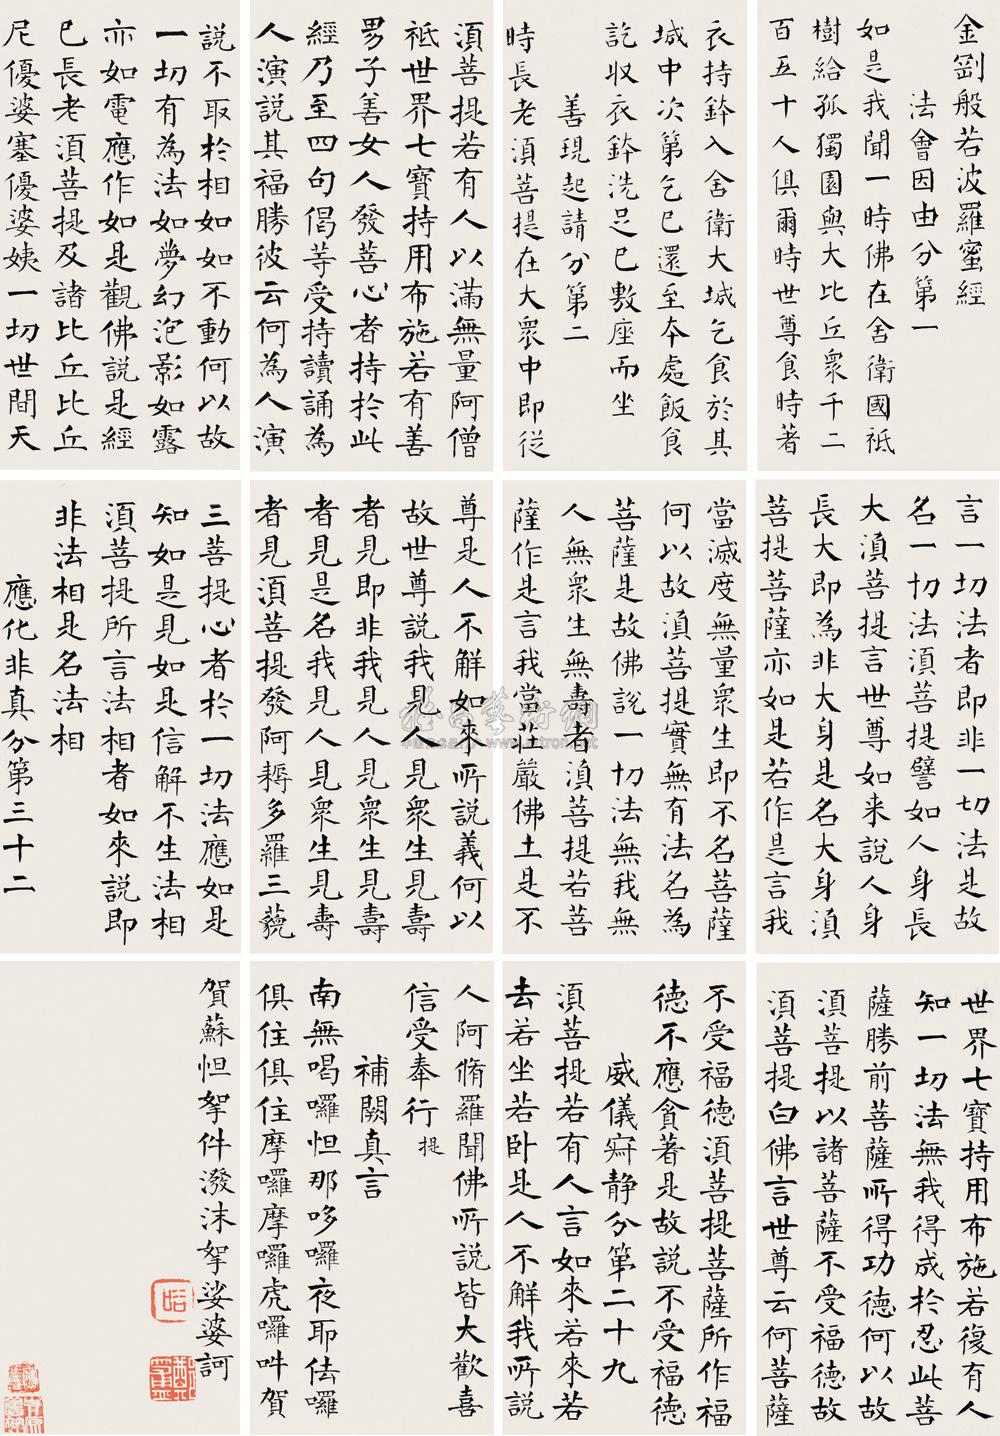 金剛般若波羅蜜經
法會因由分第一
如是我聞一時佛在舍衛國祗
樹給孤獨園與大比丘衆千二
百五十人俱爾時世尊食時著
衣持鉢入舍衛大城乞食於其
城中次第乞已還至本處飯食
訖收衣鉢洗足已敷座而坐
善現起請分第二
時長老須菩提在大衆中即從
須菩提若有人以滿無量阿僧
祗世界七寶持用布施若有善
男子善女人發菩心者持於此
經乃至四句偈等受持讀誦為
人演說其福勝彼云何為人演
說不取於相如如不動何以故
一切有為法如夢幻泡影如露
亦如電應作如是觀佛說是經
已長老須菩提及諸比丘比丘
尼優婆塞優婆姨一切世間天
言一切法者即非一切法是故
名一切法須菩提譬如人身長
大須菩提言世尊如来說人身
長大即為非大身是名大身須
菩提菩薩亦如是若作是言我
當滅度無量衆生即不名菩薩
何以故須菩提實無有法名為
菩薩是故佛說一切法無我無
人無衆生無壽者須菩提若菩
薩作是言我當莊嚴佛土是不
尊是人不解如來所說義何以
故世尊說我見人見衆生見壽
者見即非我見人見衆生見壽
者見是名我見人見衆生見壽
者見須菩提發阿耨多羅三藐
三菩提心者於一切法應如是
知如是見如是信解不生法相
須菩提所言法相者如來說即
非法相是名法相
應化非真分第三十二
世界七寶持用布施若復有人
知一切法無我得成於忍此菩
薩勝前菩薩所得功德何以故
須菩提以諸菩薩不受福德故
須菩提白佛言世尊云何菩薩
不受福德須菩提菩薩所作福
德不應貪著是故說不受福德
威儀寂静分第二十九
須菩提若有人言如來若來若
去若坐若卧是人不解我所說
人阿脩羅聞佛所說皆大歡喜
信受奉行 提
補闕真言
南無喝囉怛那哆囉夜耶佉囉
俱住俱住摩囉摩囉虎囉吽賀
賀蘇怛拏件潑沫拏娑婆訶